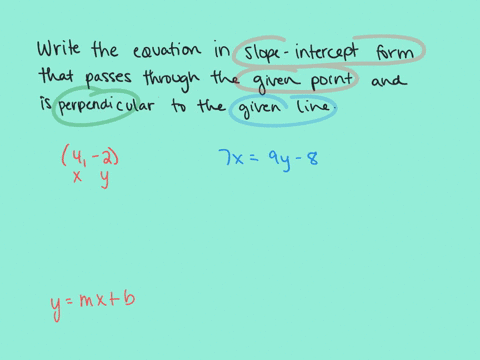 Write the equation in slope-intercept form
that passes through the given point and
is perpendicular to the given line.
(4, -2)
x y
7x = 9y - 8
y = mx + b